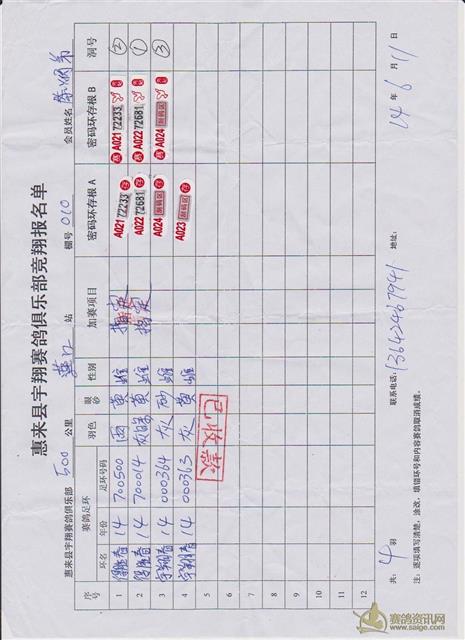 惠来县宇翔赛鸽俱乐部竞翔报名单
惠来县宇翔赛鸽俱乐部 500 公里 站 棚号 010 会员姓名
序号 赛鸽足环 羽色 眼砂 性别 加赛项目 密码环存根 A 密码环存根 B 洞号
环名 年份 足环号码
1 14 700500 雨 黄 雄 指定 A021 72233 A021 72233 ②
2 14 700014 黄 雄 指定 A022 72681 A022 72681 ①
3 宇翔春 14 000364 灰 砂 雄 A024 刮码区 A024 刮码区 ③
4 宇翔春 14 000363 灰 黄 雄 A023 刮码区
5
6
7
8
9
10
11
12
已收款
共: 4 羽 联系电话: 13642467941 地址: 14 年 6 月 11 日
注: 逐项填写清楚, 涂改、填错环号和内容赛鸽取消成绩。
赛鸽资讯网
www.saige.com